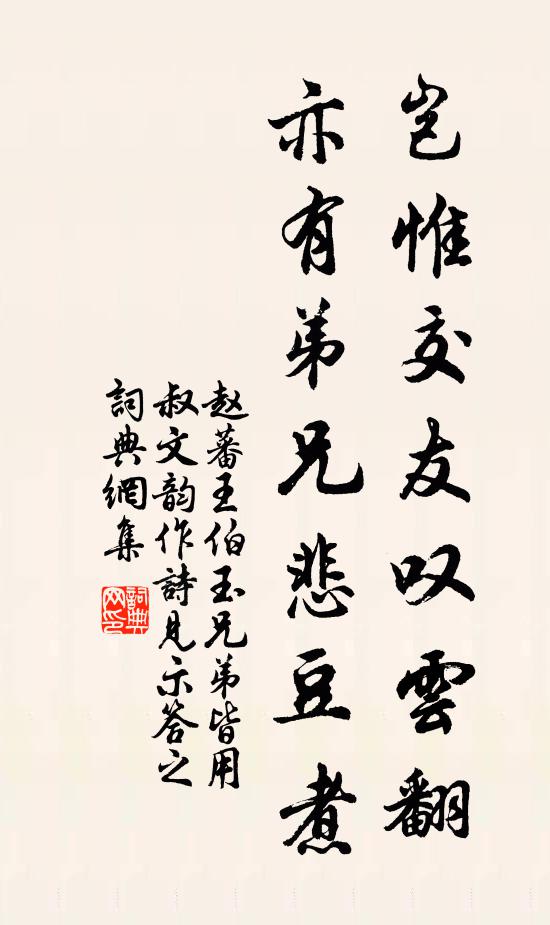 岂惟交友叹雲翻
亦有弟兄悲豆煮
赵蕃王伯玉兄弟皆用
叔文韵作詩見示答之
詞典網集
詞典网印